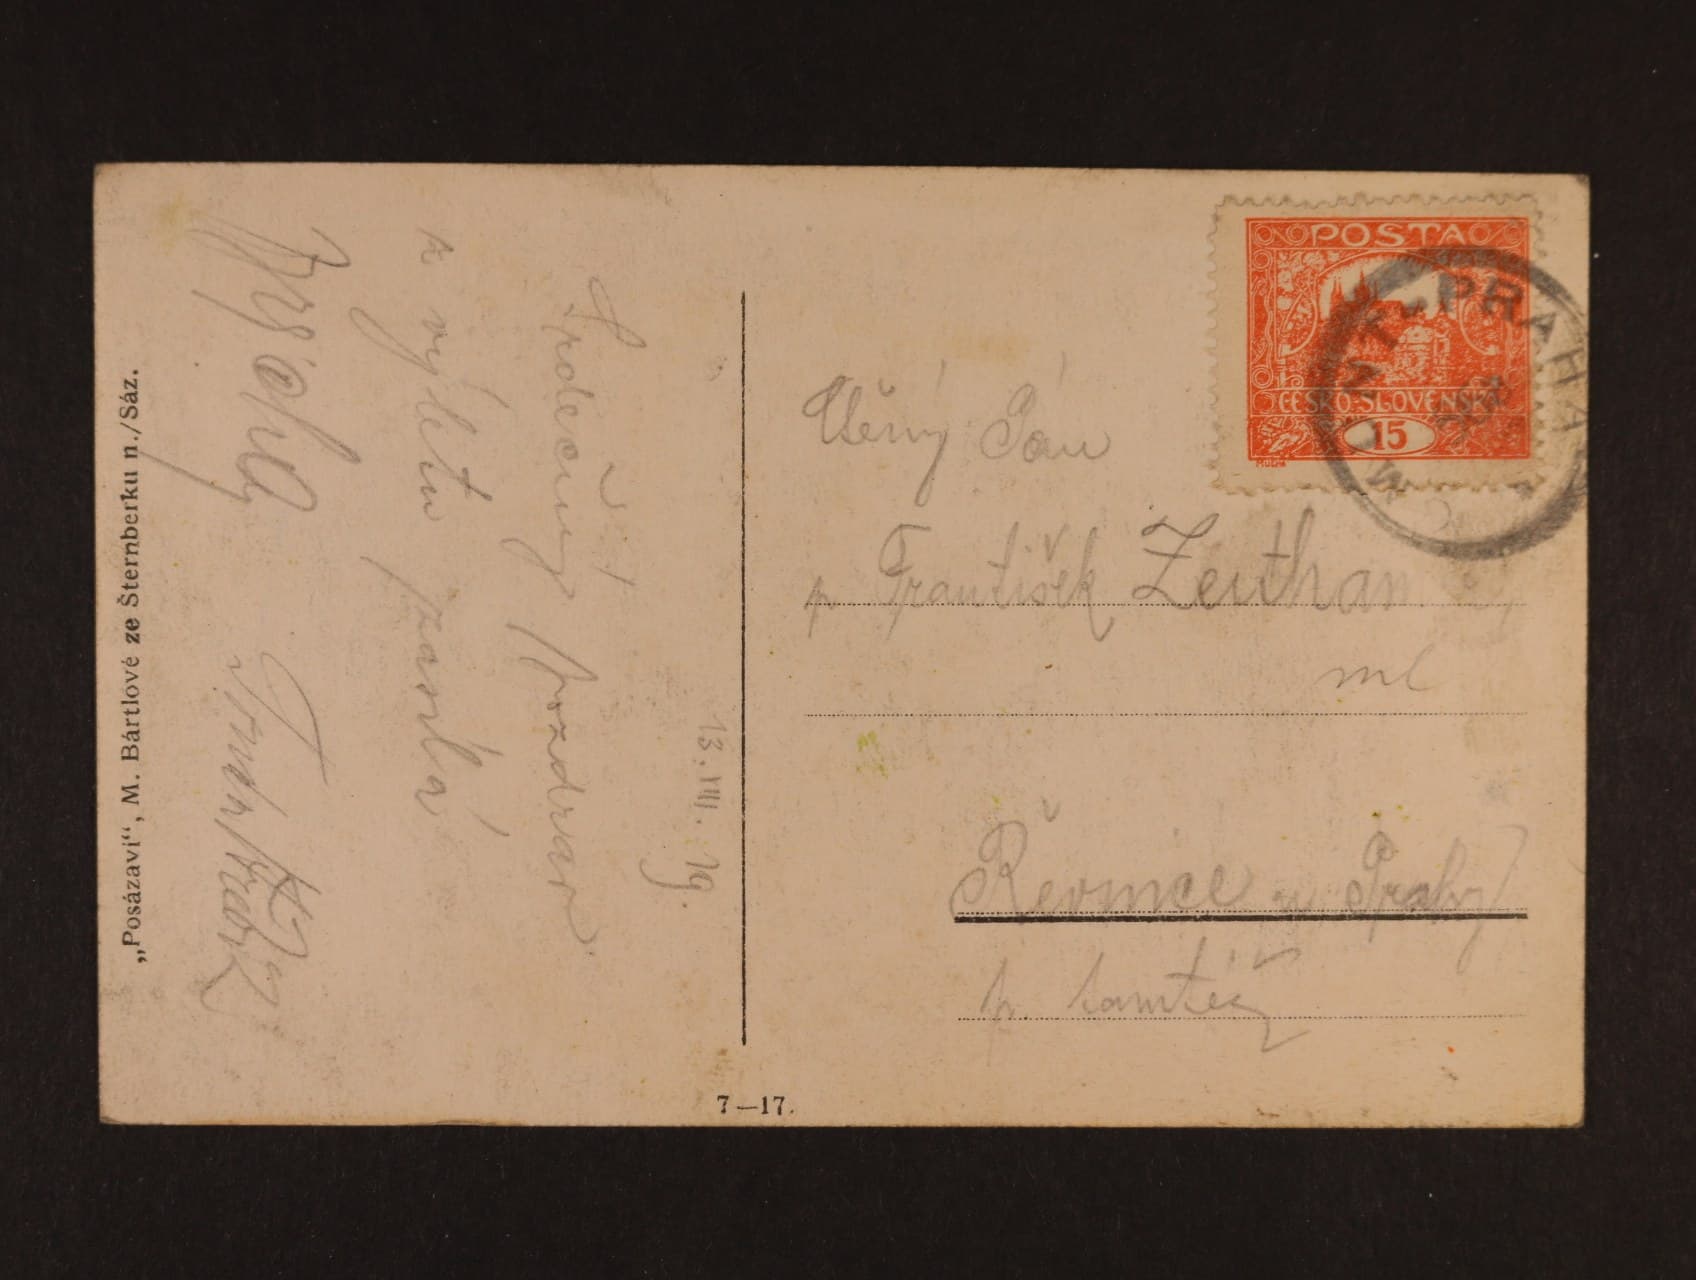 „Posázaví“, M. Bártlové ze Šternberku n./Sáz.
13. VIII. 19.
Srdečný pozdrav
z výletu zasílá
7—17.
POSTA
ČESKO-SLOVENSKÁ
15
MUCHA
PRAHA
Ctěný Pán
p František Zeitham
ml
Řevnice u Prahy
p. tamtéž